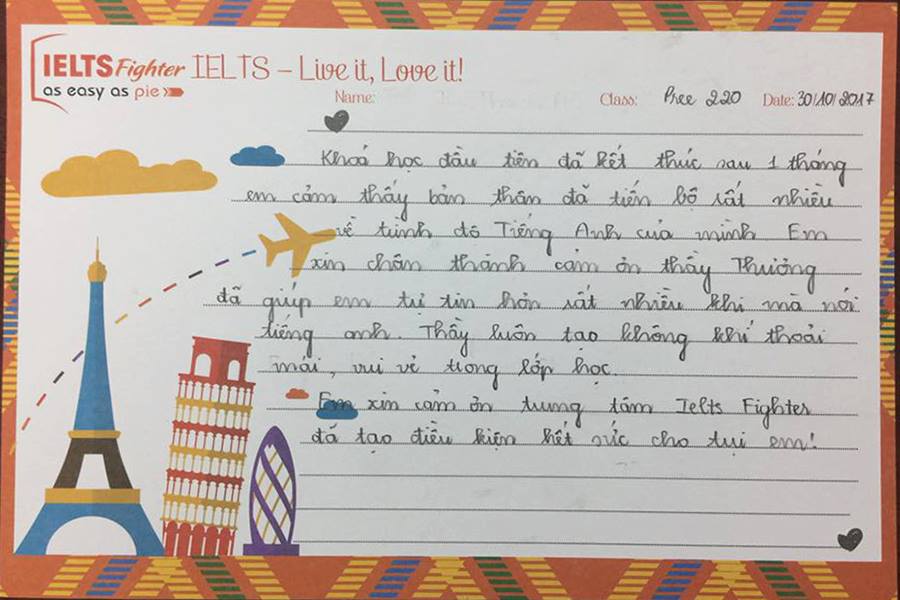 IELTS Fighter IELTS – Live it, Love it!
as easy as pie
Name: Class: Pree 220 Date: 30/10/2017
Khoá học đầu tiên đã kết thúc sau 1 tháng
em cảm thấy bản thân đã tiến bộ rất nhiều
về trình độ Tiếng Anh của mình Em
xin chân thành cảm ơn thầy Thưởng
đã giúp em tự tin hơn rất nhiều khi mà nói
tiếng anh. Thầy luôn tạo không khí thoải
mái, vui vẻ trong lớp học.
Em xin cảm ơn trung tâm Ielts Fighter
đã tạo điều kiện hết sức cho tụi em!